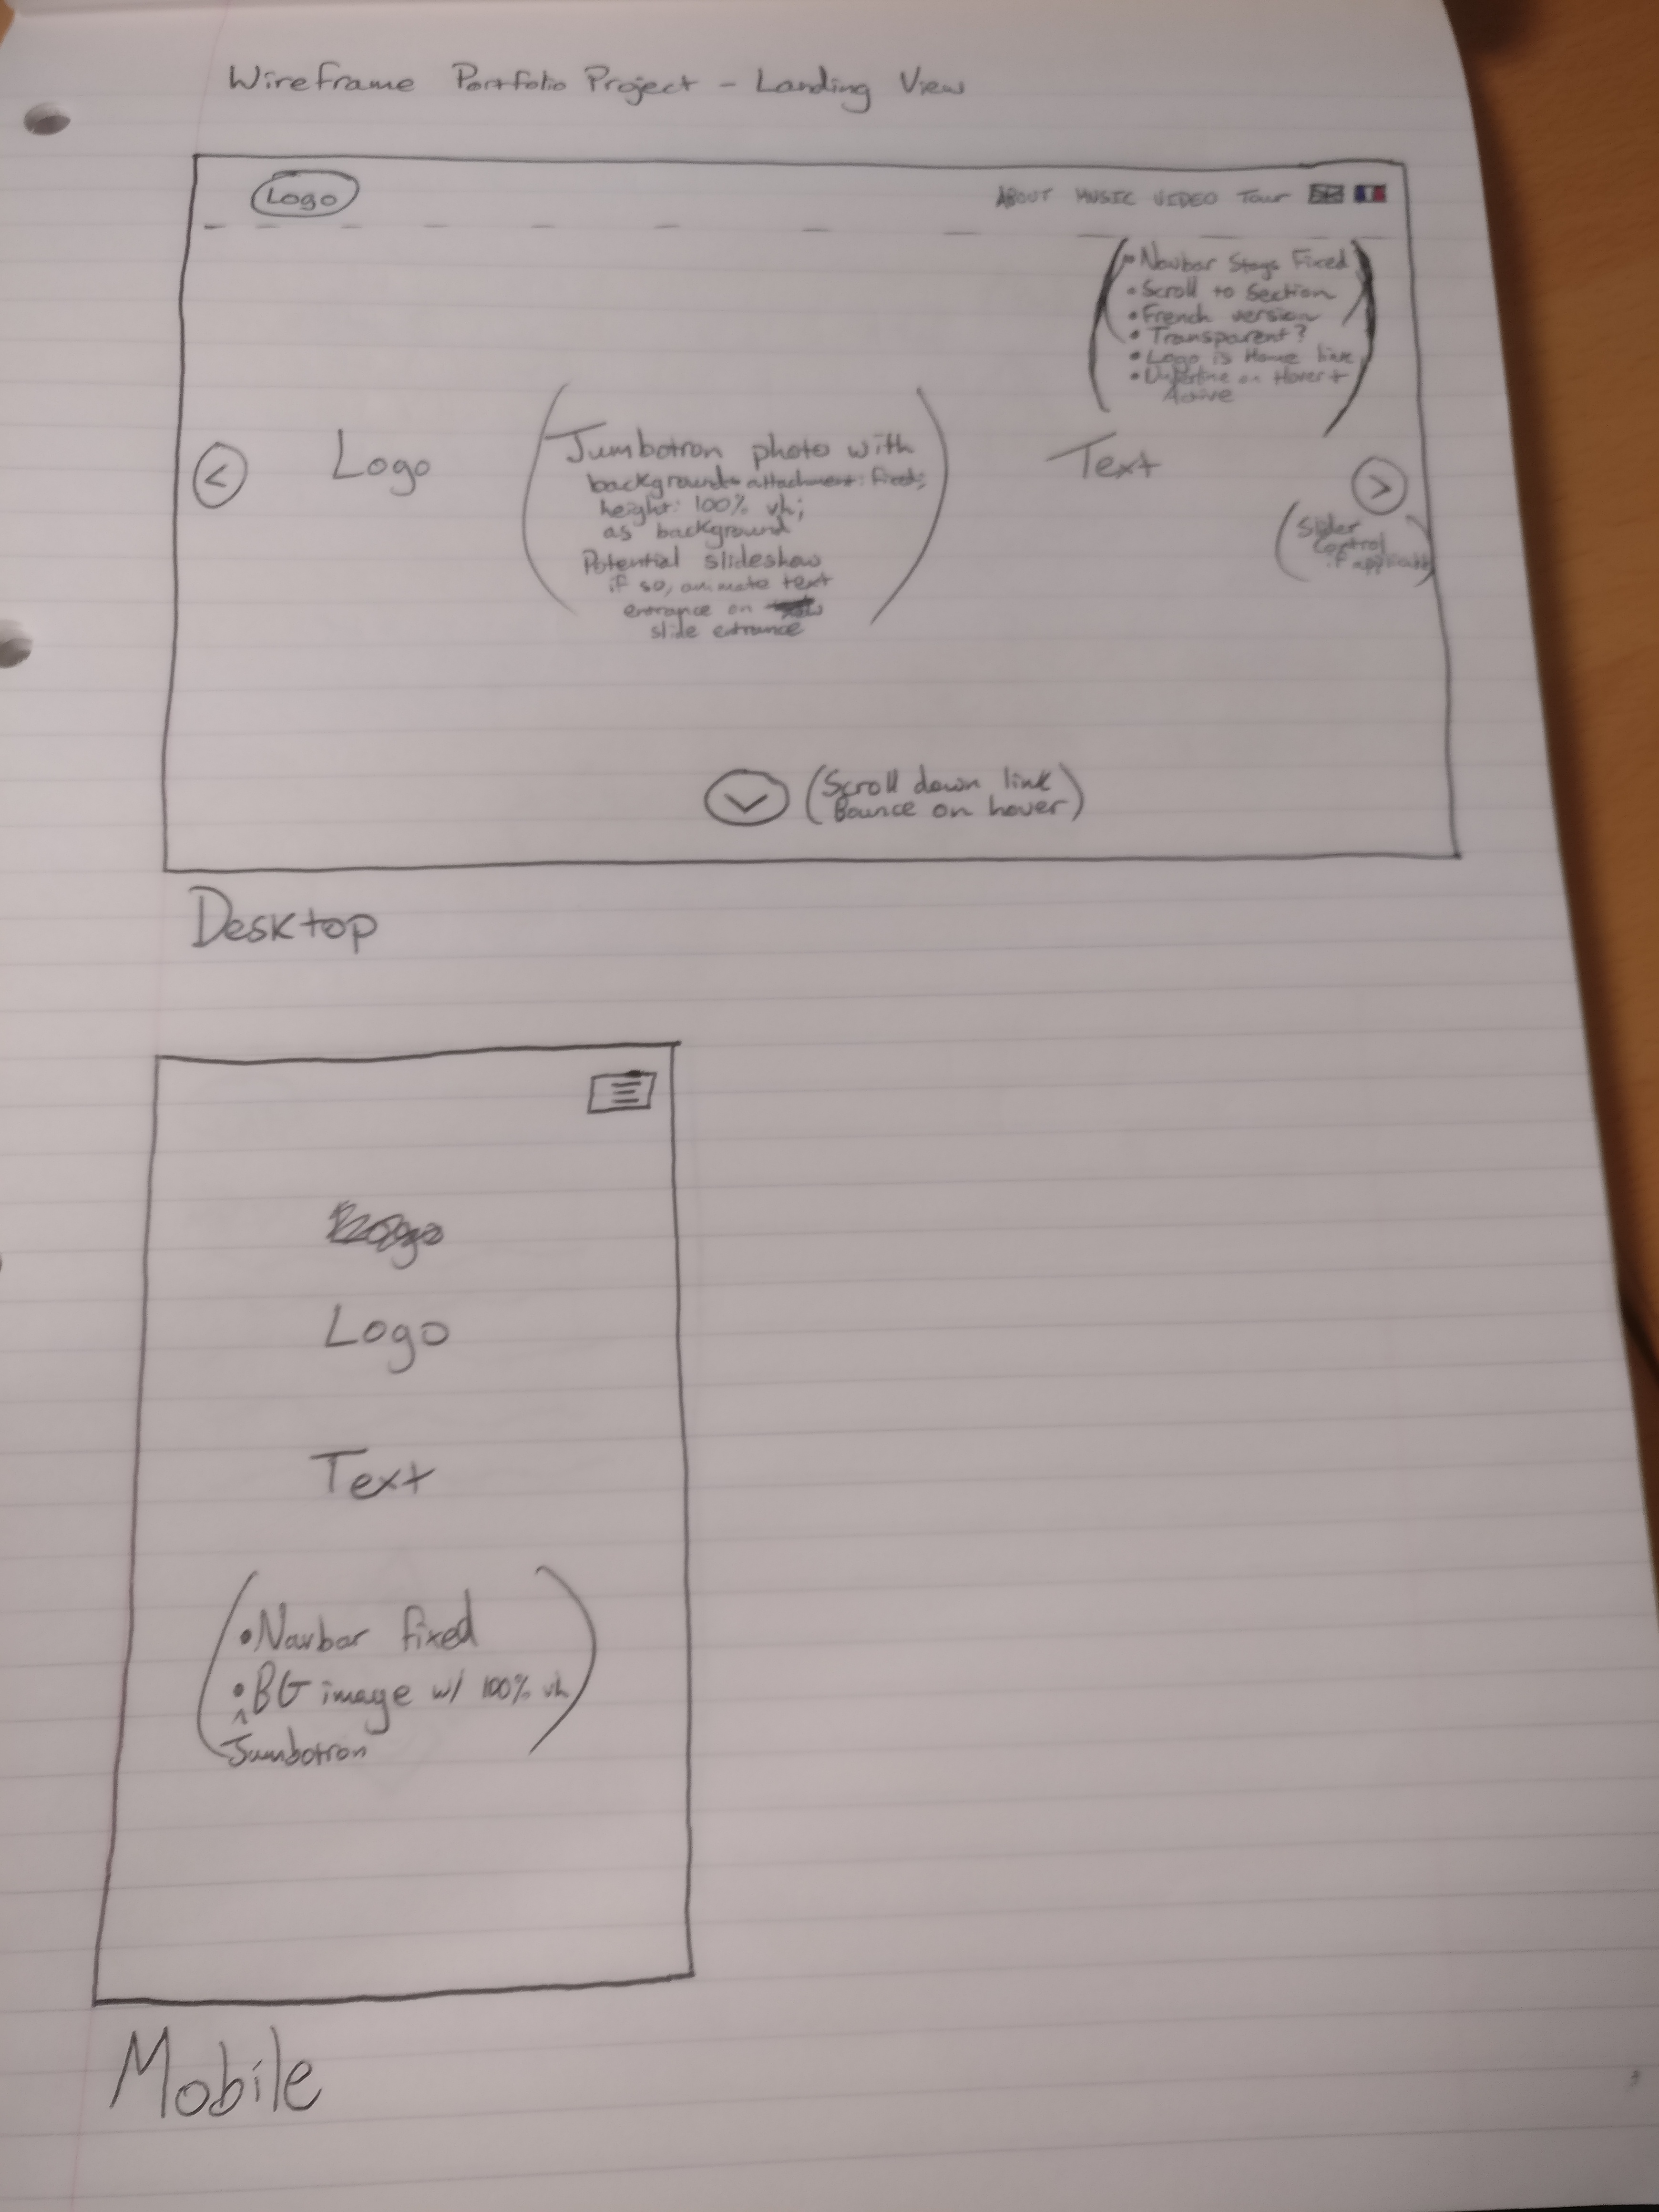 Wireframe Portfolio Project - Landing View
Logo
ABOUT MUSIC VIDEO Tour
• Navbar Stays Fixed
• Scroll to Section
• French version
• Transparent?
• Logo is Home link
• Underline on Hover +
Active
<
Logo
(Jumbotron photo with
background-attachment: fixed;
height: 100% vh;
as background
Potential slideshow
if so, animate text
entrance on
slide entrance)
Text
>
(Slider
Control
if applicable)
(Scroll down link
Bounce on hover)
Desktop
Logo
Text
(• Navbar fixed
• BG image w/ 100% vh
^
Jumbotron)
Mobile